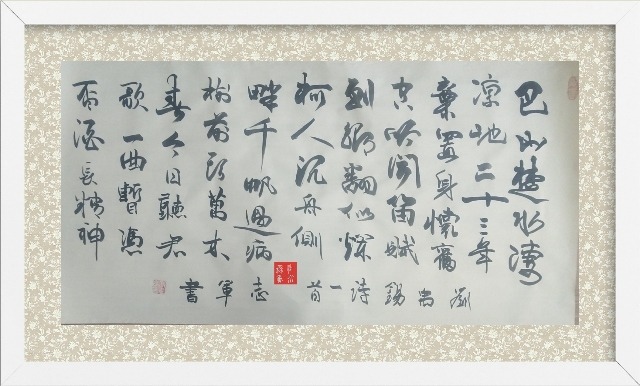 巴山楚水凄
凉地二十三年
棄置身懷舊
空吟聞笛賦
到鄉翻似爛
柯人沉舟側
畔千帆過病
樹前頭萬木
春今日聽君
歌一曲暫憑
杯酒長精神
劉禹錫詩一首 志軍書